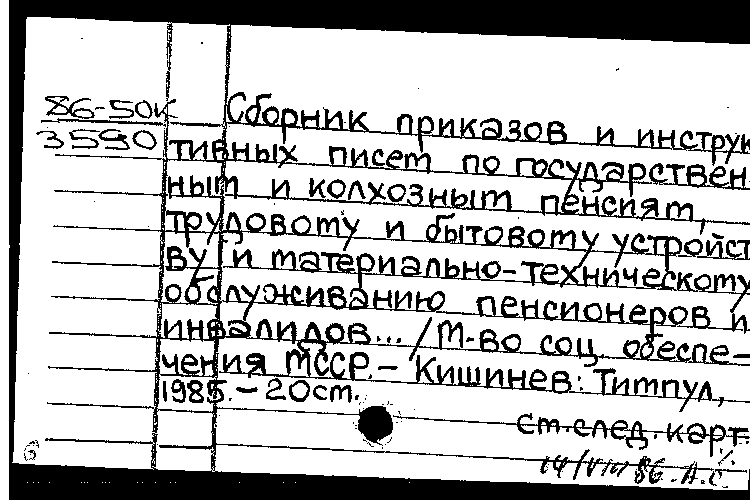 86-50К
3590
Сборник приказов и инструк
тивных писем по государствен
ным и колхозным пенсиям,
трудовому и бытовому устройст
ву и материально-техническому
обслуживанию пенсионеров и
инвалидов... / М-во соц. обеспе-
чения МССР. - Кишинев: Тимпул,
1985. - 20 см.
См. след. карт.
14/VIII 86. А.С.
6